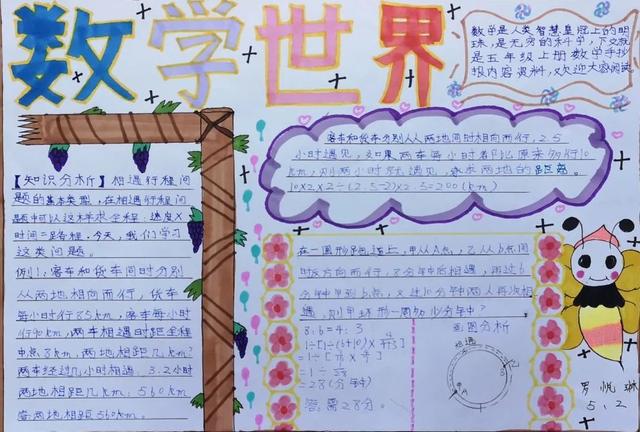 数学世界
数学是人类智慧皇冠上的明
珠,是无穷的科学,下文就
是五年级上册数学手抄
报内容资料,欢迎大家阅读
客车和货车分别从两地同时相向而行,2.5
小时遇见,如果两车每小时都比原来多行10
km,则两小时就遇见,求两地的距离
10×2×2÷(2.5-2)×2.5=200(km)
【知识分析】相遇行程问
题的基本类型,在相遇行程问
题中可以这样求全程:速度×
时间=路程,今天,我们学习
这类问题。
例1:客车和货车同时分别
从两地相向而行,货车
每小时行85km,客车每小时
行90km,两车相遇时距全程
中点8km,两地相距几km?
两车经过几小时相遇,3.2小时
两地相距几km:560km
答:两地相距560km。
在一圆形跑道上,甲从A点,乙从b点同
时反方向而行,8分钟后相遇,再过6
分钟甲到b点,又过10分钟两人再次相
遇,则甲环形一周需
8:6=4:3
画图分析
相遇
=28(分钟)
答:需28分。
罗悦琳
5、2